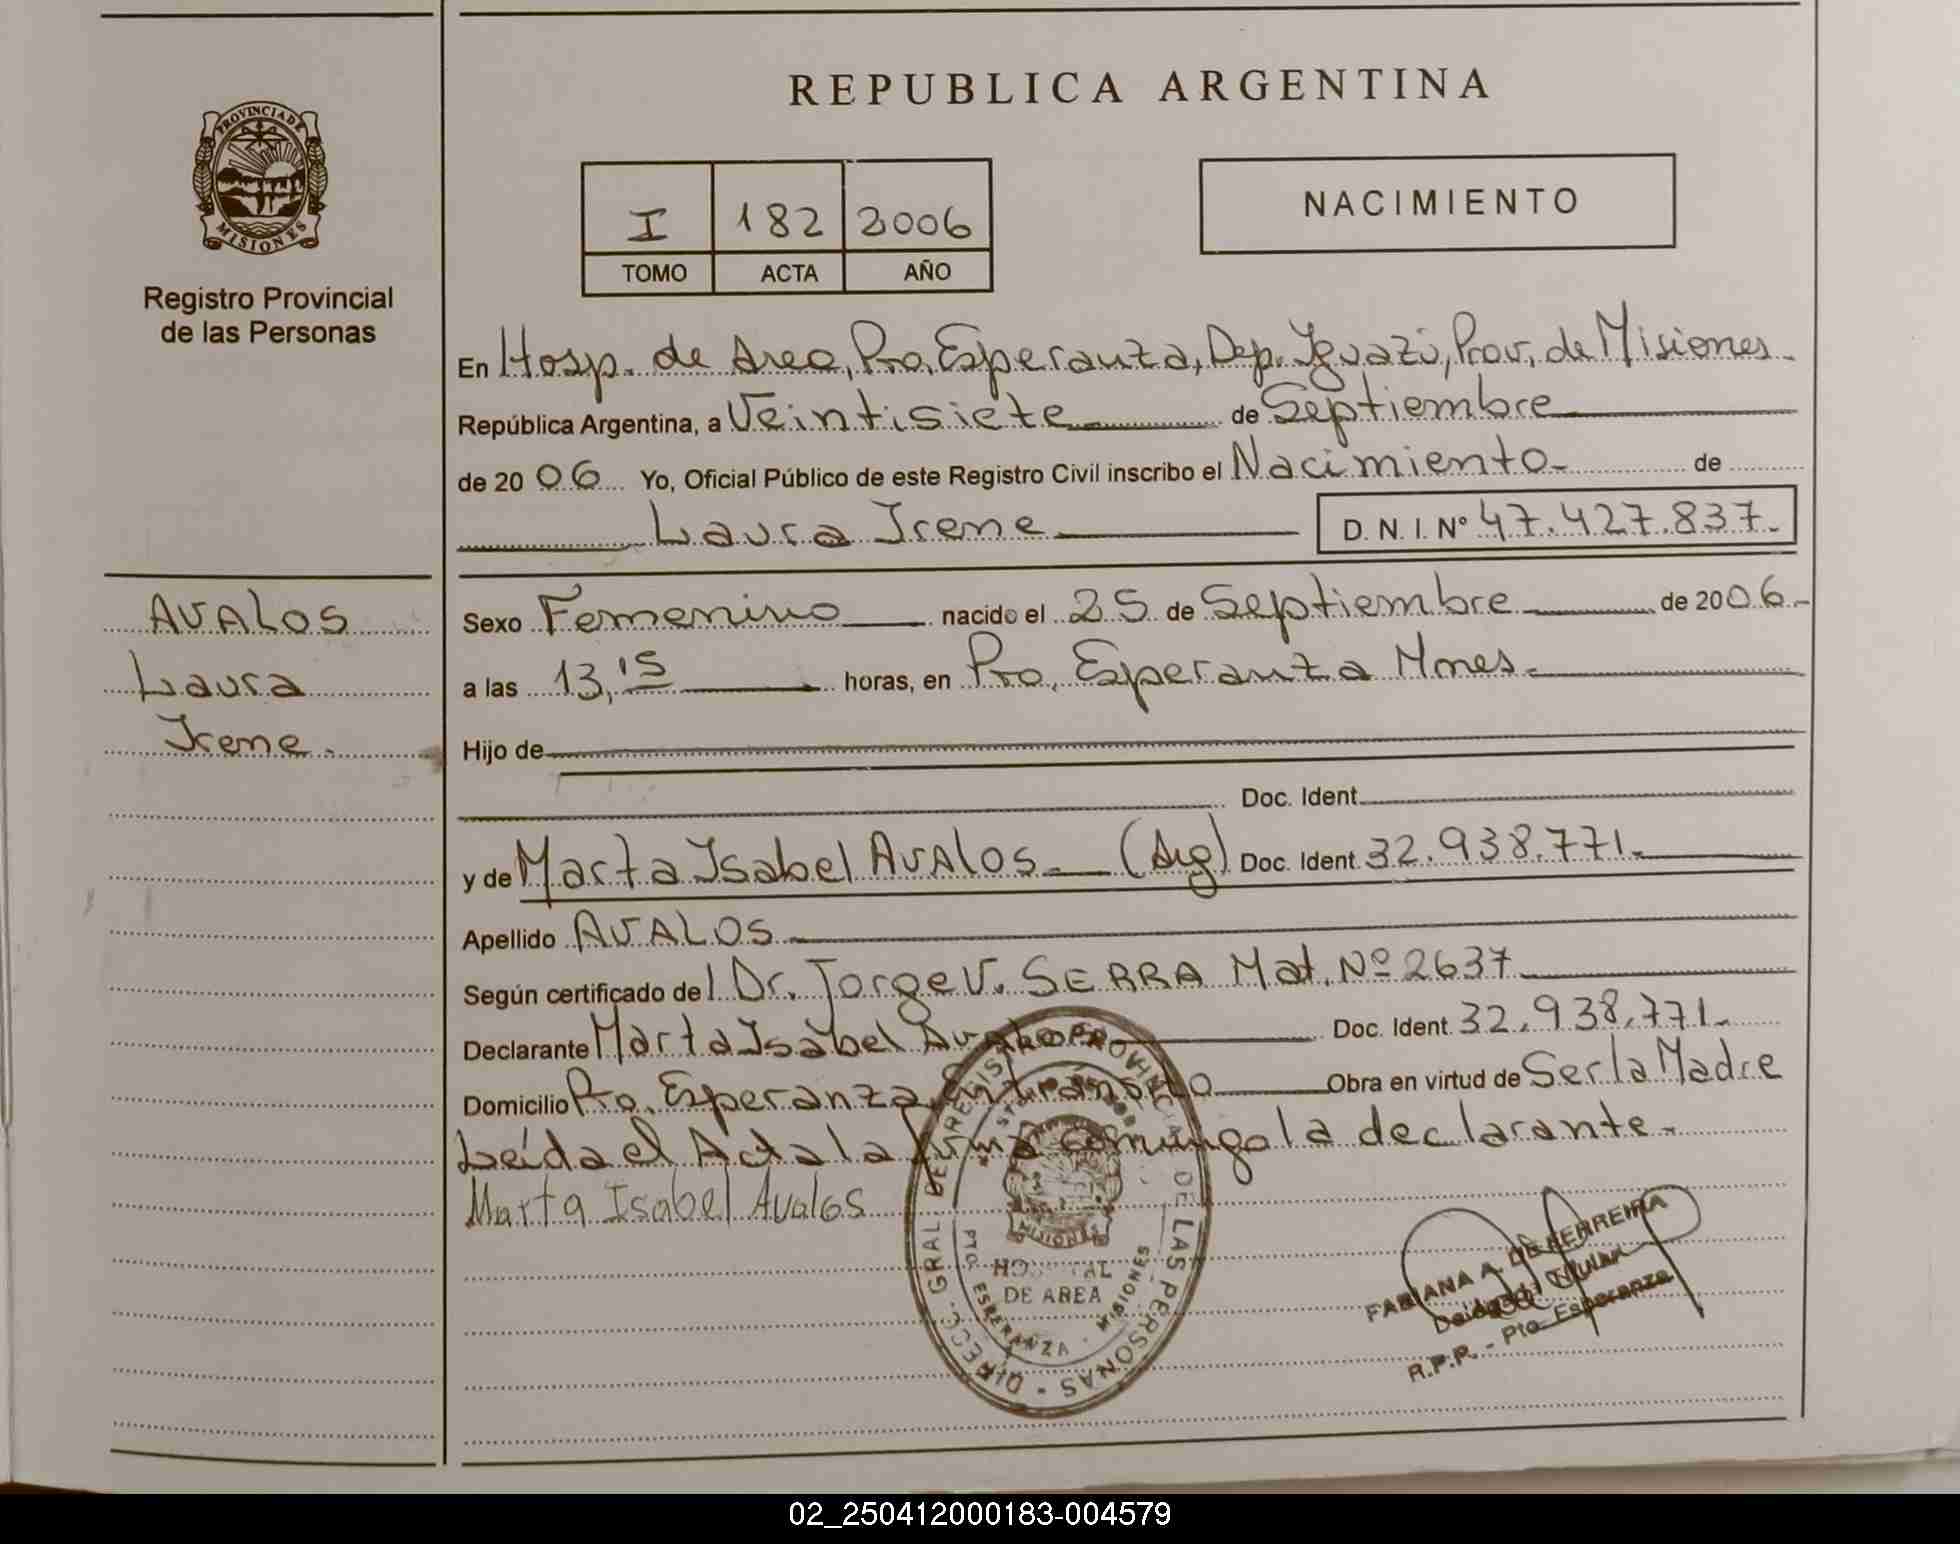 REPUBLICA ARGENTINA
PROVINCIA DE
MISIONES
Registro Provincial
de las Personas
I 182 2006
TOMO ACTA AÑO
NACIMIENTO
En Hosp. de Area, Pto. Esperanza, Dep. Iguazú, Prov. de Misiones
República Argentina, a Veintisiete de Septiembre
de 2006 Yo, Oficial Público de este Registro Civil inscribo el Nacimiento de
Laura Irene D. N. I. Nº 47.427.837.
AVALOS
Laura
Irene.
Sexo Femenino nacido el 25 de Septiembre de 2006.
a las 13,15 horas, en Pto. Esperanza Mnes.
Hijo de
Doc. Ident.
y de Marta Isabel AVALOS (Arg) Doc. Ident. 32.938.771.
Apellido AVALOS
Según certificado del Dr. Jorge V. SERRA Mat. Nº 2637
Declarante Marta Isabel Avalos Doc. Ident. 32.938.771.
Domicilio Pto. Esperanza en tránsito Obra en virtud de Ser la Madre
Leída el Acta la firma conmigo la declarante.
Marta Isabel Avalos
DIRECC. GRAL DE REGISTRO PROVINCIAL DE LAS PERSONAS
MISIONES
HOSPITAL
DE AREA
PTO. ESPERANZA - MISIONES
FABIANA A. DE FERREIRA
Delegada Titular
R.P.P. - Pto. Esperanza
02_250412000183-004579